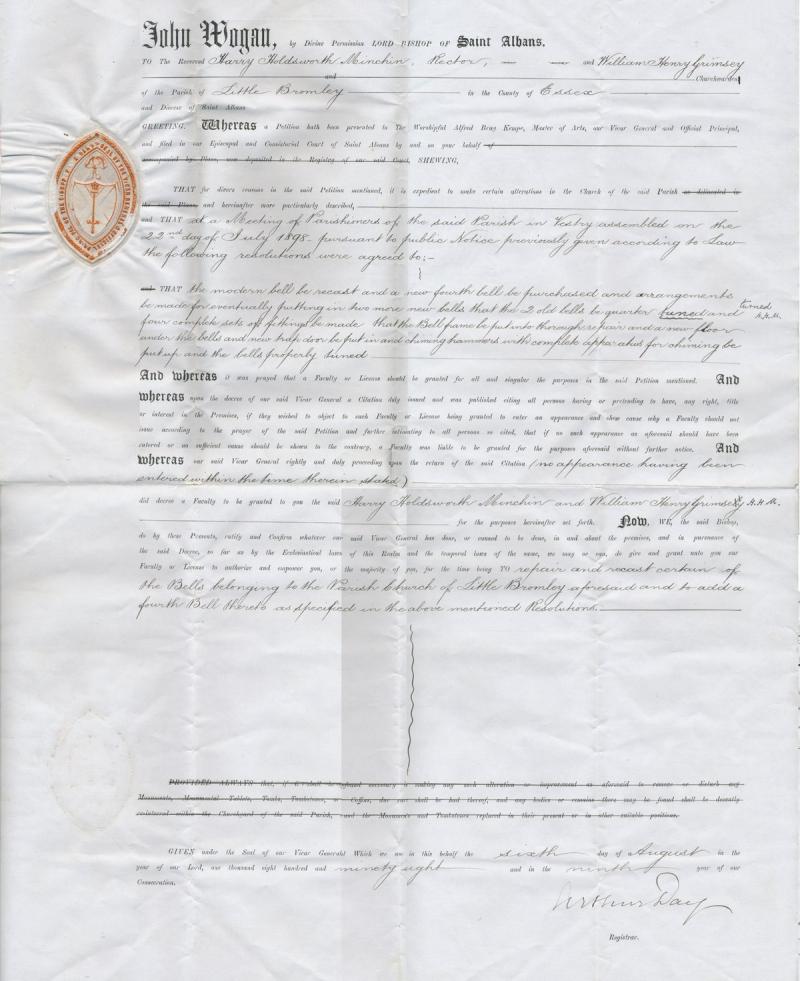 John Wogan, by Divine Permission LORD BISHOP OF Saint Albans.
TO The Reverend Harry Holdsworth Minchin, Rector, and William Henry Grimsey
and Churchwarden
of the Parish of Little Bromley in the County of Essex
and Diocese of Saint Albans
GREETING. Whereas a Petition hath been presented to The Worshipful Alfred Bray Kempe, Master of Arts, our Vicar General and Official Principal,
and filed in our Episcopal and Consistorial Court of Saint Albans by and on your behalf of
accompanied by Plans, now deposited in the Registry of our said Court, SHEWING,
THAT for divers reasons in the said Petition mentioned, it is expedient to make certain alterations in the Church of the said Parish as delineated in
the said Plans, and hereinafter more particularly described,
and THAT at a Meeting of Parishioners of the said Parish in Vestry assembled on the
22nd day of July 1898 pursuant to public Notice previously given according to Law
the following resolutions were agreed to:-
and THAT the modern bell be recast and a new fourth bell be purchased and arrangements
be made for eventually putting in two more new bells that the 2 old bells be quarter tuned and turned H.H.M.
four complete sets of fittings be made that the Bell frame be put into thorough repair and a new floor
under the bells and new trap door be put in and chiming hammers with complete apparatus for chiming be
put up and the bells properly tuned
And whereas it was prayed that a Faculty or License should be granted for all and singular the purposes in the said Petition mentioned. And
whereas upon the decree of our said Vicar General a Citation duly issued and was published citing all persons having or pretending to have, any right, title
or interest in the Premises, if they wished to object to such Faculty or License being granted to enter an appearance and shew cause why a Faculty should not
issue according to the prayer of the said Petition and further intimating to all persons so cited, that if no such appearance as aforesaid should have been
entered or no sufficient cause should be shown to the contrary, a Faculty was liable to be granted for the purposes aforesaid without further notice. And
whereas our said Vicar General rightly and duly proceeding upon the return of the said Citation (no appearance having been
entered within the time therein stated)
did decree a Faculty to be granted to you the said Harry Holdsworth Minchin and William Henry Grimsey H.H.M.
for the purposes hereinafter set forth. Now, WE, the said Bishop,
do by these Presents, ratify and Confirm whatever our said Vicar General has done, or caused to be done, in and about the premises, and in pursuance of
the said Decree, so far as by the Ecclesiastical laws of this Realm and the temporal laws of the same, we may or can, do give and grant unto you our
Faculty or License to authorize and empower you, or the majority of you, for the time being TO repair and recast certain of
the Bells belonging to the Parish Church of Little Bromley aforesaid and to add a
fourth Bell thereto as specified in the above mentioned Resolutions.
PROVIDED ALWAYS that, if it shall be found necessary in making any such alteration or improvement as aforesaid to remove or disturb any
Monuments, Monumental Tablets, Tombs, Tombstones, or Coffins, due care shall be had thereof, and any bodies or remains there may be found shall be decently
reinterred within the Churchyard of the said Parish, and the Monuments and Tombstones replaced in their present or in other suitable positions.
GIVEN under the Seal of our Vicar General Which we use in this behalf the sixth day of August in the
year of our Lord, one thousand eight hundred and ninety eight and in the ninth year of our
Consecration.
Arthur Day
Registrar.